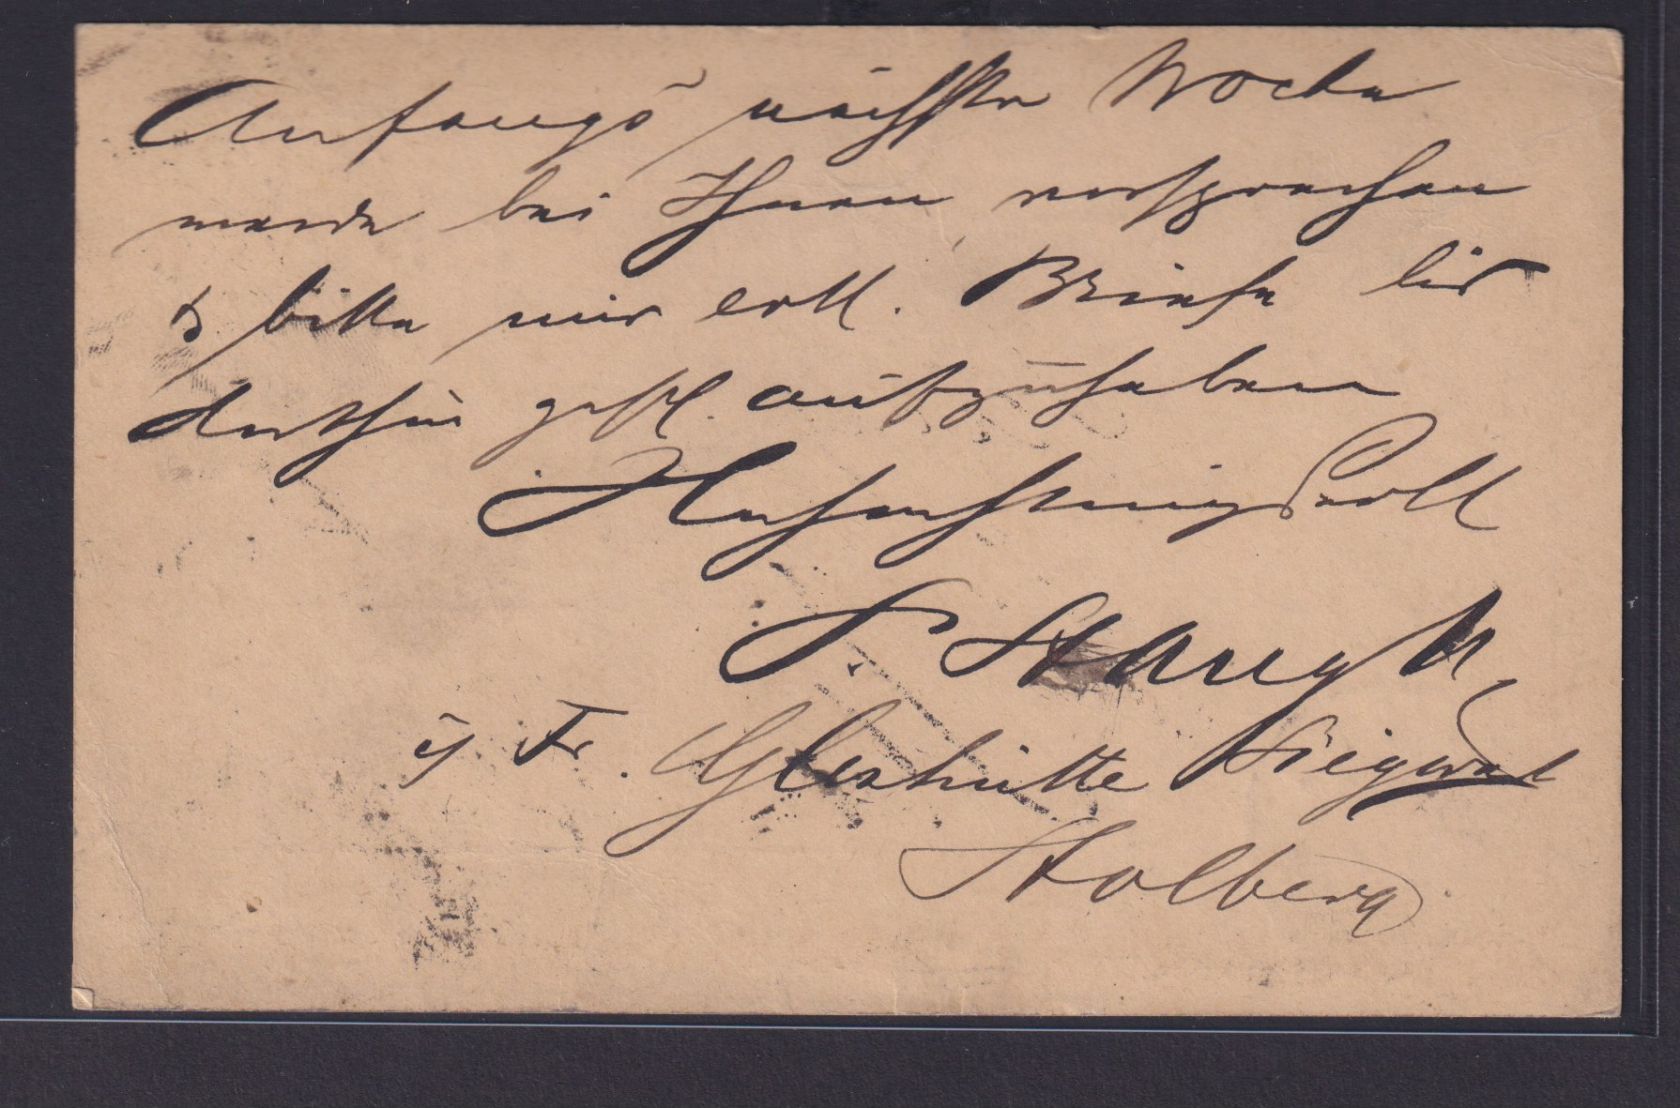 Anfangs nächster Woche
werde bei Ihnen vorsprechen
& bitte mir evtl. Briefe bis
dorthin gefl. aufzuheben
Hochachtungsvoll
Glashütte Siegwart
Stolberg